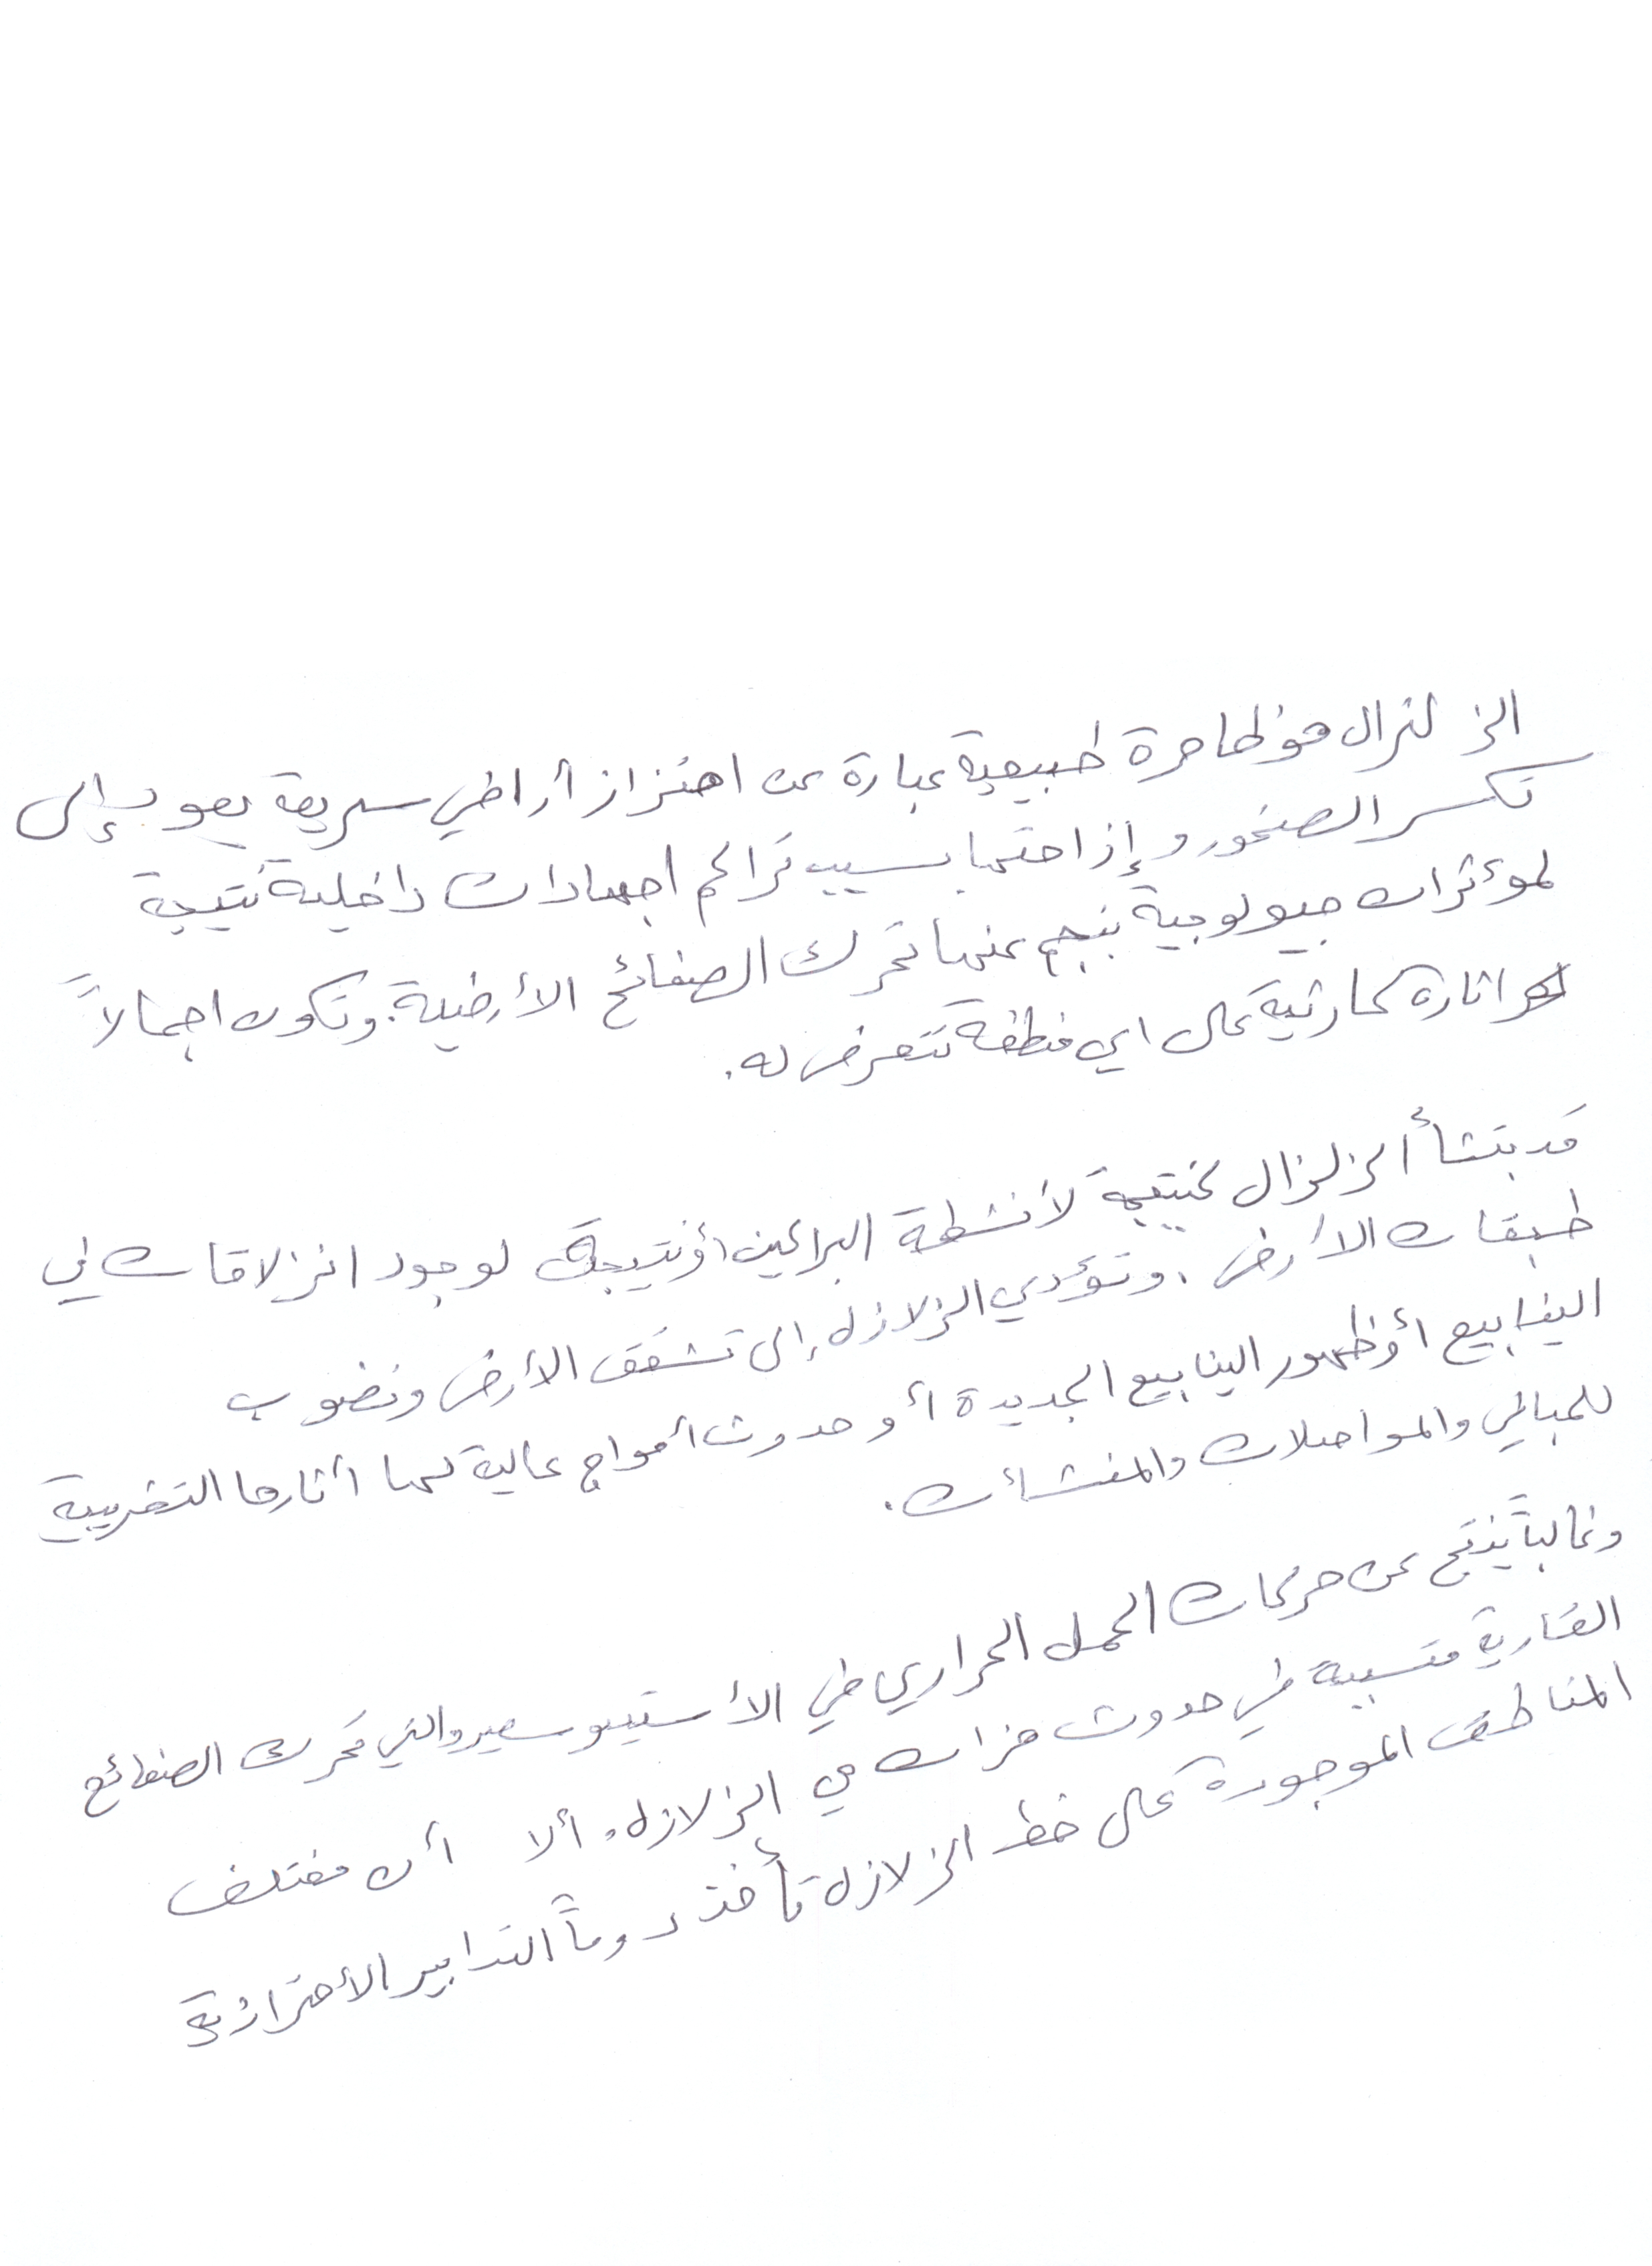 الزلزال هو ظاهرة طبيعية عبارة عن اهتزاز أراضي سريعة يعود إلى
تكسر الصخور وإزاحتها بسبب تراكم اجهادات داخلية نتيجة
لمؤثرات جيولوجية ينجم عنها تحرك الصفائح الأرضية. وتكون اجمالاً
اثاره كارثية على اي منطقة تتعرض له.
قد ينشأ الزلزال كنتيجة لأنشطة البراكين أو نتيجة لوجود انزلاقات في
طبقات الأرض. وتؤدي الزلازل إلى تشقق الأرض ونضوب
الينابيع أو ظهور الينابيع الجديدة أو حدوث أمواج عالية لها أثارها التخريبية
للمباني والمواصلات والمنشأت.
وغالباً ينتج عن حركات الحمل الحراري في الأستينوسفير والتي تحرك الصفائح
القارية متسببة في حدوث هزات هي الزلازل. ألا أن مختلف
المناطق الموجودة على خط الزلازل تأخذ دوماً التدابير الأحترازية